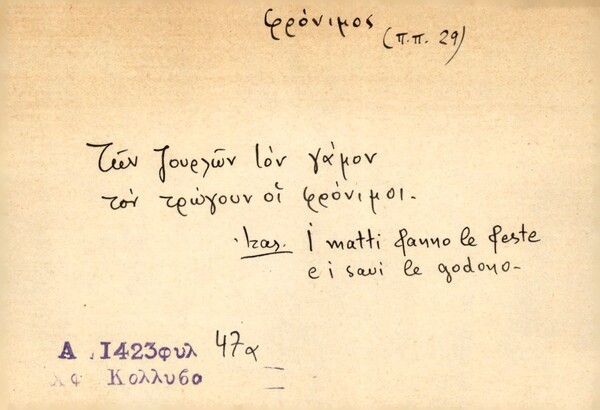 φρόνιμος (π.π. 29)
Τῶν ζουρλῶν τὸν γάμον
τὸν τρώγουν οἱ φρόνιμοι.
Ἰταλ. I matti fanno le feste
e i savi le godono.
Α 1423φυλ 47α
Κολλυβα